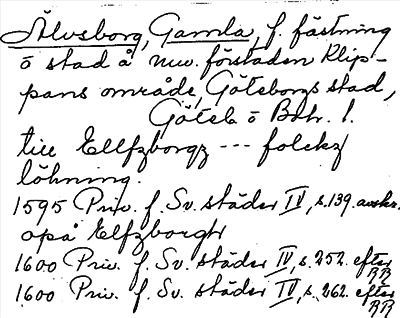 Älvsborg, Gamla, f. fästning
o stad å nuv. förstaden Klip-
pans område, Göteborgs stad,
Göteb o Boh. l.
till Ellfzborgz --- folckz
löhning.
1595 Priv. f. Sv. städer IV, s. 139. avskr.
opå Elfzborgh
1600 Priv. f. Sv. städer IV, s. 252. efter RR
1600 Priv. f. Sv. städer IV, s. 262. efter RR